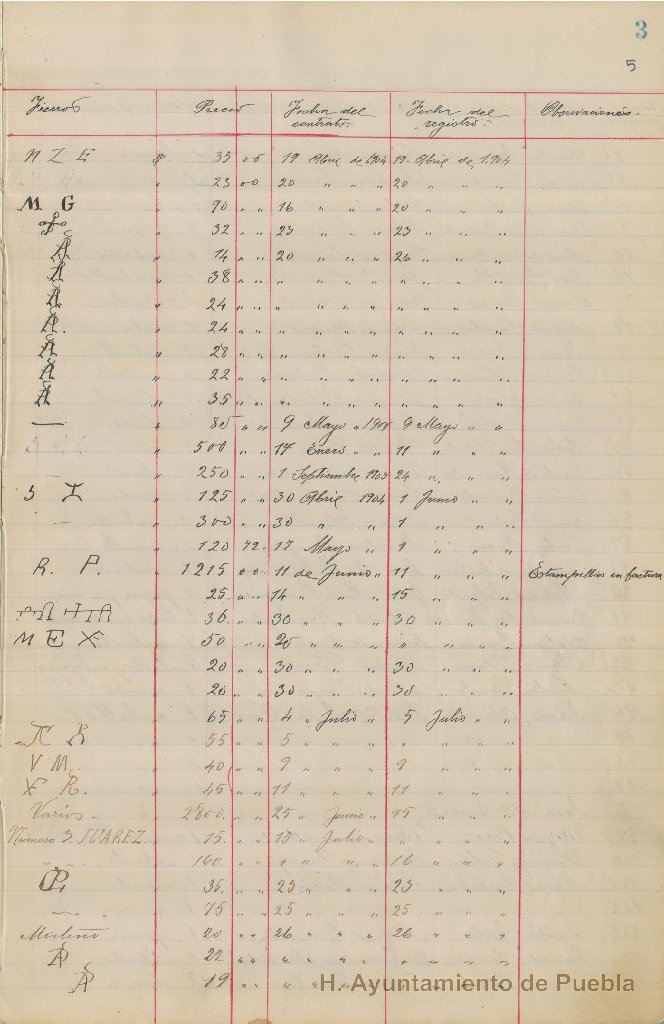 3
5
Fierros Precio Fecha del contrato. Fecha del registro. Observaciones.
N Z E $ 35 00 19 Abril de 1904 19 Abril de 1,904
" 23 00 20 " " " 20 " " "
M G " 90 " " 16 " " " 20 " " "
" 32 " " 23 " " " 23 " " "
" 14 " " 20 " " " 26 " " "
" 38 " " " " " " " " " "
" 24 " " " " " " " " " "
" 24 " " " " " " " " " "
" 28 " " " " " " " " " "
" 22 " " " " " " " " " "
" 35 " " " " " " " " " "
— " 85 " " 9 Mayo " 1904 9 Mayo " "
" 500 " " 17 Enero " " 11 " " "
" 250 " " 1 Septiembre 1903 24 " " "
S I " 125 " " 30 Abril 1904 1 Junio " "
– " 300 " " 30 " " 1 " " "
" 120 72 17 Mayo " 9 " " "
R. P. " 1215 00 11 de Junio " 11 " " " Estampillas en factura
" 25 " " 14 " " " 15 " " "
" 36 " " 30 " " " 30 " " "
M E X " 50 " " 25 " " " " " " "
" 20 " " 30 " " " 30 " " "
" 20 " " 30 " " " 30 " " "
" 65 " " 4 " Julio " 5 Julio " "
R " 55 " " 5 " " " " " " "
V M. " 40 " " 9 " " " 9 " " "
X R. " 45 " " 11 " " " 11 " " "
Varios. " 2800 " " 25 " Junio " 15 " " "
Número 3. JUAREZ. " 15 " " 15 " Julio " " " " "
" 160 " " " " " " 16 " " "
" 36 " " 23 " " " 23 " " "
" 75 " " 25 " " " 25 " " "
" 20 " " 26 " " " 26 " " "
" 22 " " " " " " " " " "
" 19 " " " " " "
H. Ayuntamiento de Puebla